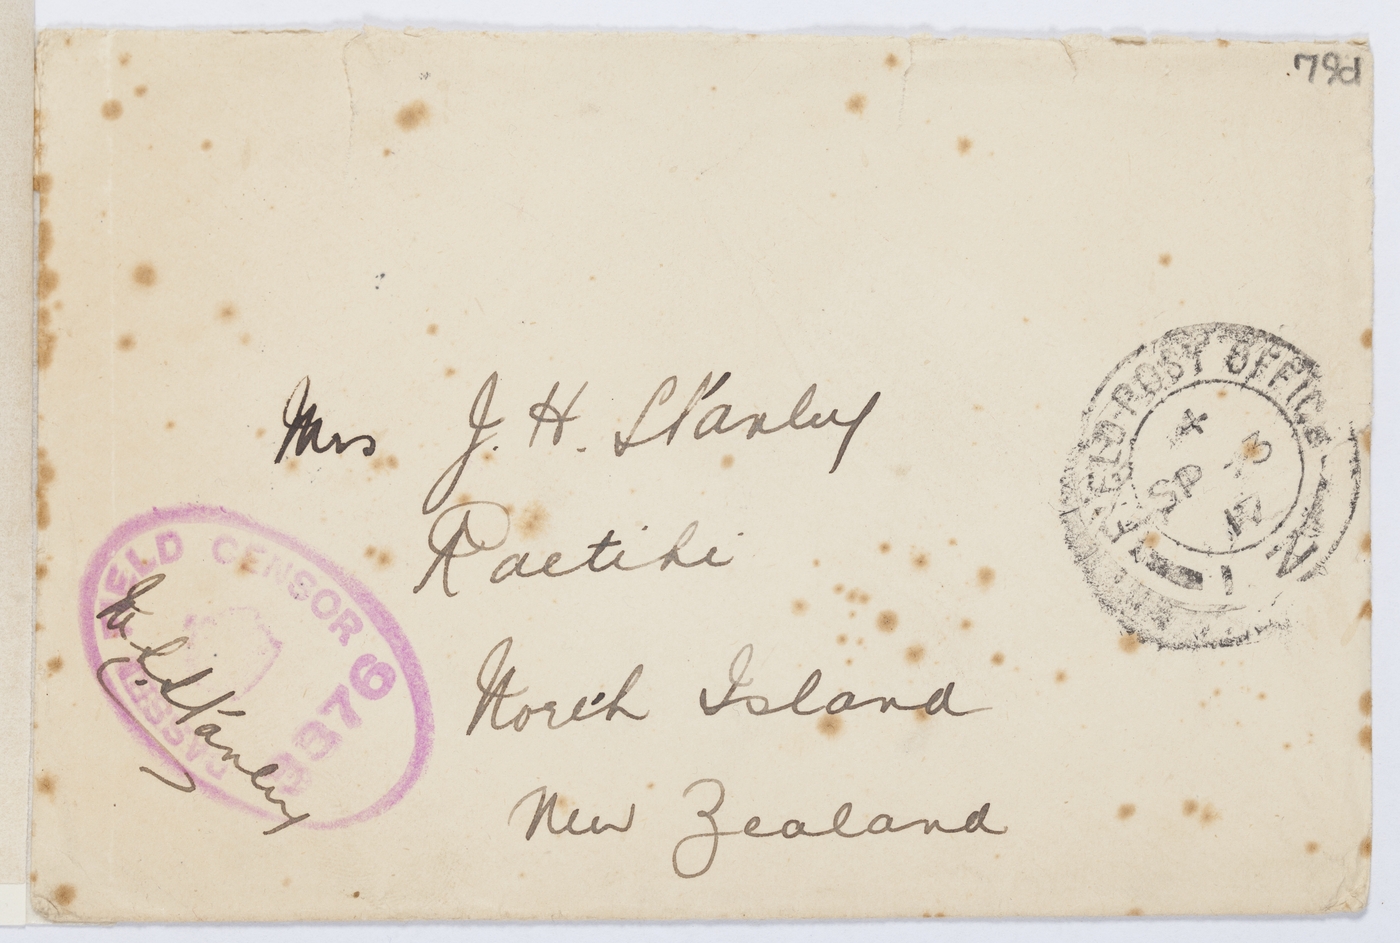 78d
Mrs J. H. Stanley
Raetihi
North Island
New Zealand
FIELD POST OFFICE
X
SP 13
17
FIELD CENSOR
PASSED
Stanley